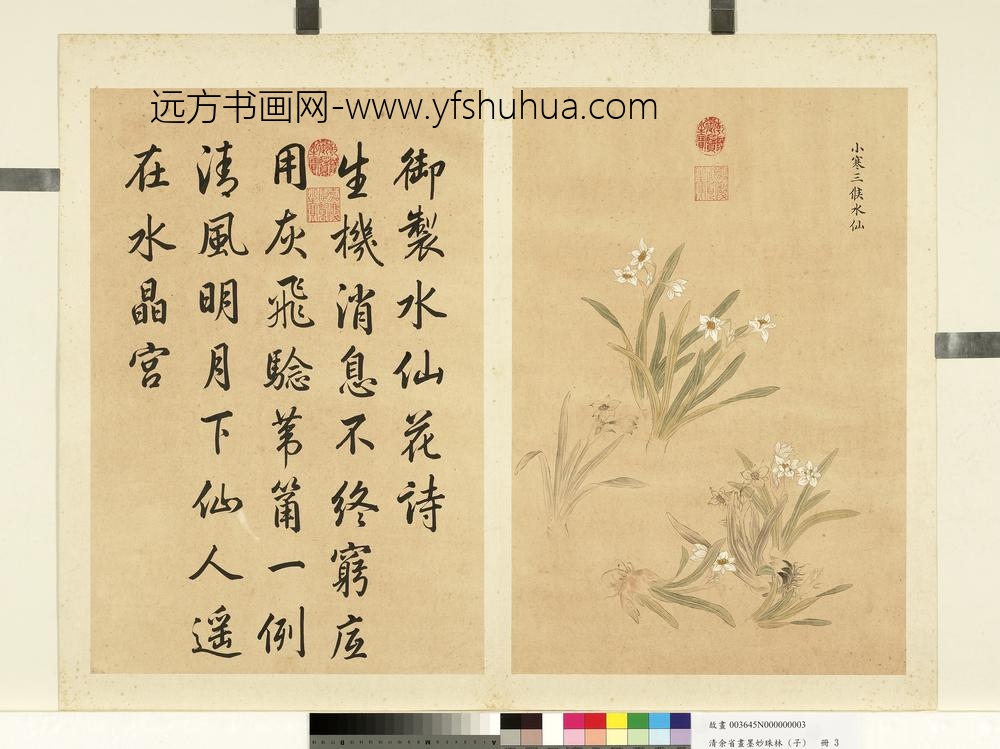 远方书画网-www.yfshuhua.com
小寒三候水仙
御製水仙花詩
生機消息不終窮底
用灰飛驗葦筩一例
清風明月下仙人遥
在水晶宮
故畫 003645N000000003
清余省畫墨妙珠林（子） 冊 3